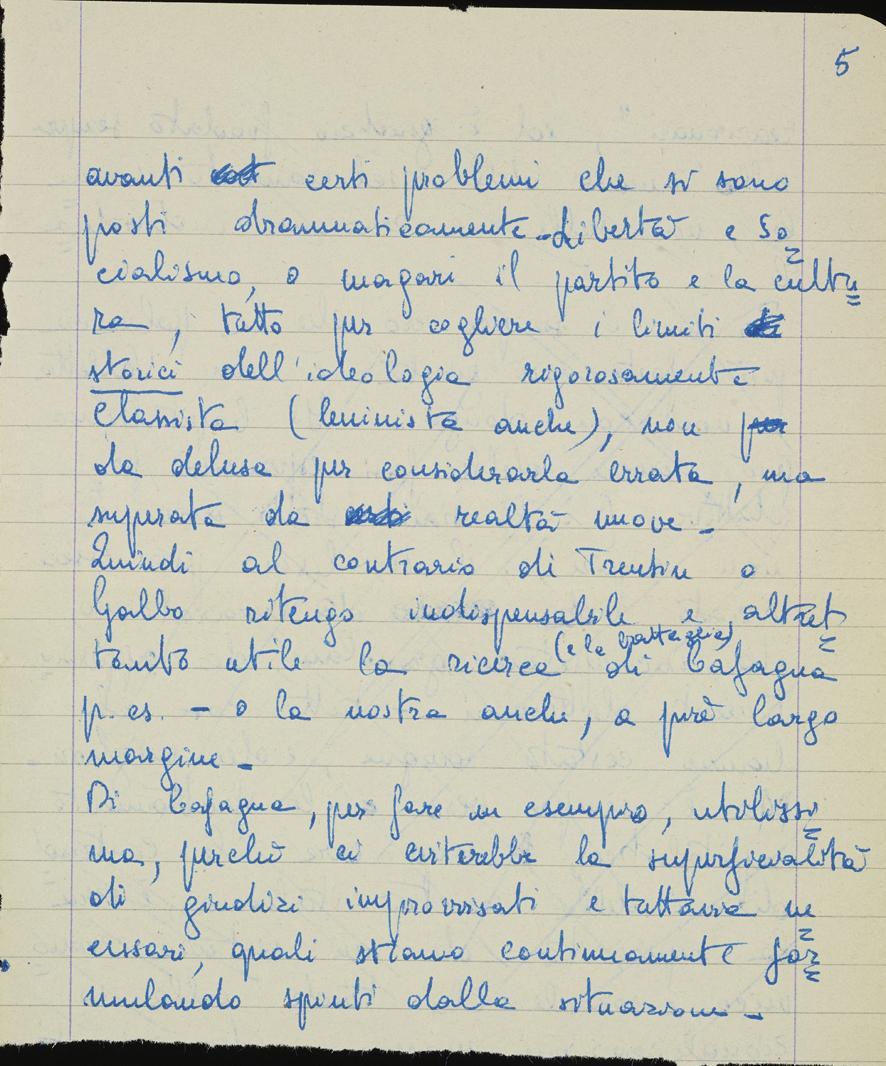 5
avanti certi problemi che si sono
posti drammaticamente - Libertà e so=
cialismo, o magari il partito e la cultu=
ra, tutto per cogliere i limiti
storici dell'ideologia rigorosamente
classista (leninista anche), non
da delusa per considerarla errata, ma
superata da realtà nuove -
Quindi al contrario di Trentin o
Gallo ritengo indispensabile e altret=
tanto utile la ricerca (e le battaglie) di Cafagna
p. es. - o la nostra anche, a però largo
margine -
Di Cafagna, per fare un esempio, utilissi=
ma, perché ci eviterebbe la superficialità
di giudizi improvvisati e tuttavia ne=
cessari, quali stiamo continuamente for=
mulando spinti dalla situazione -